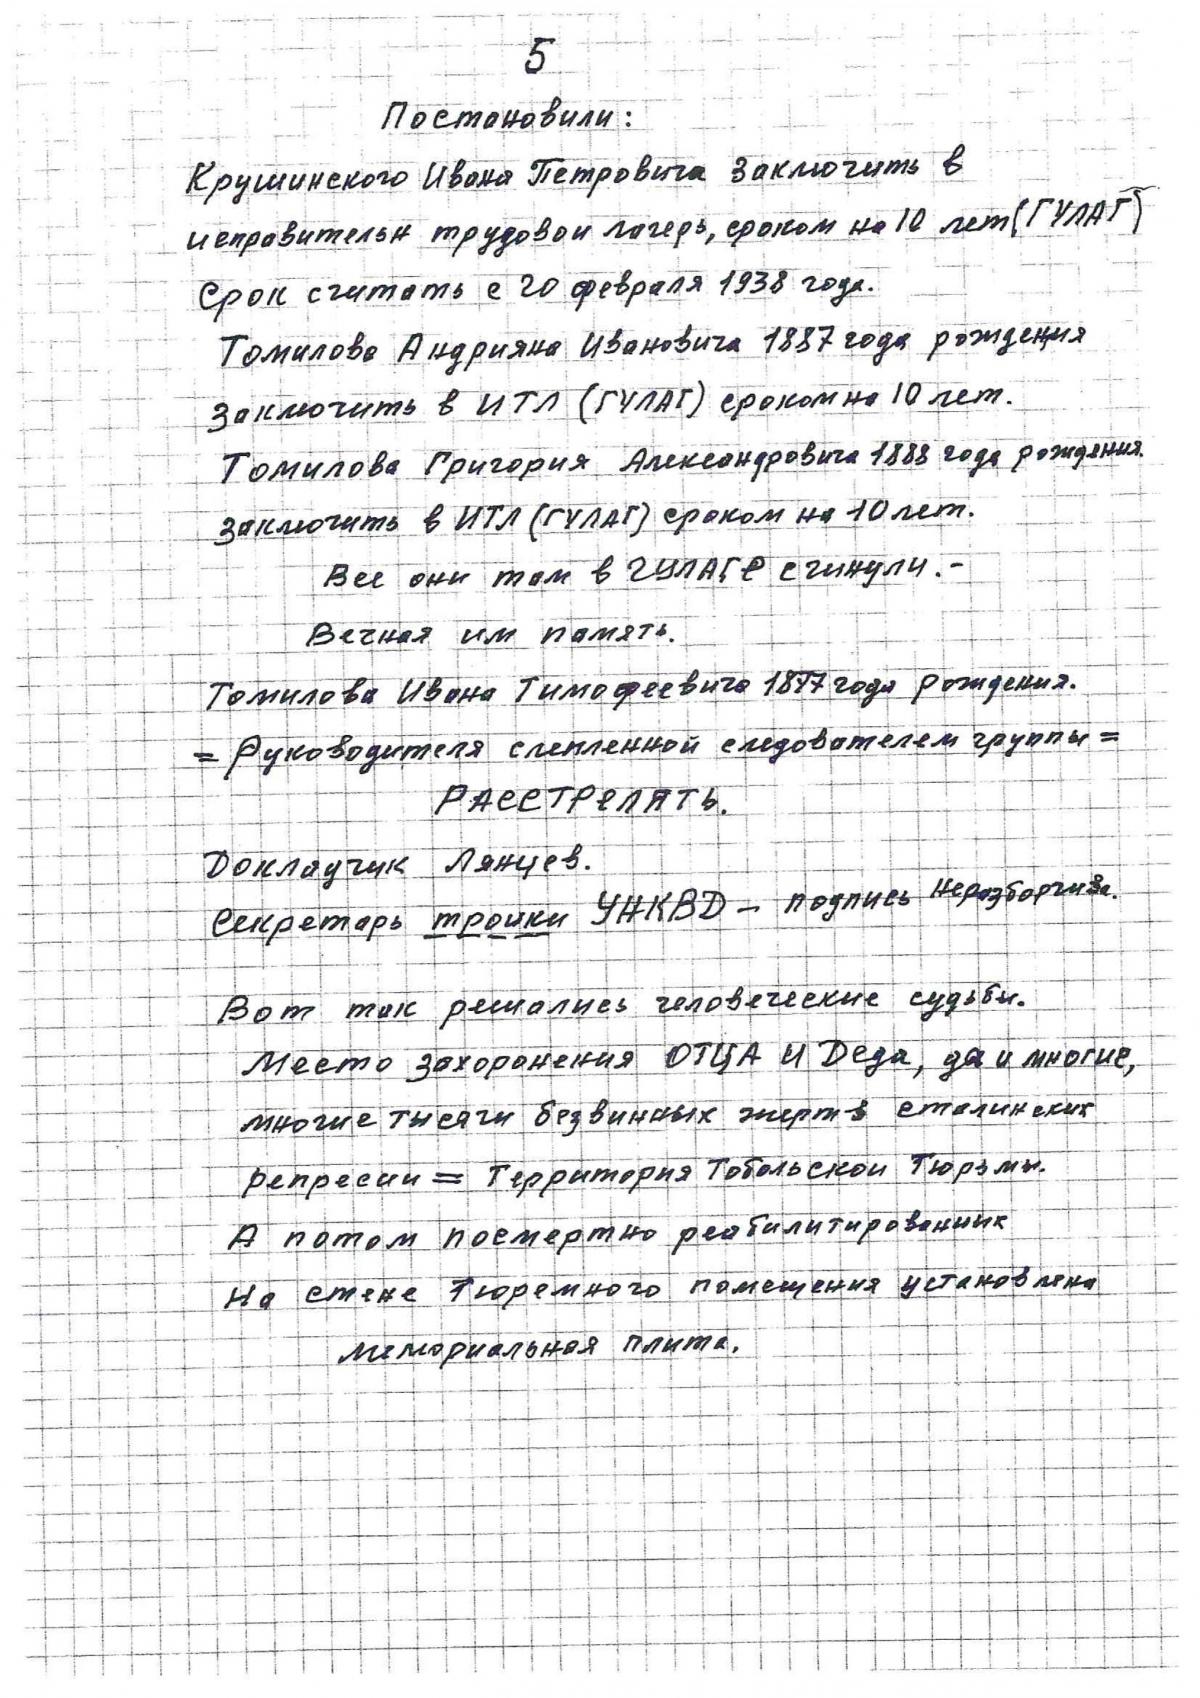 5
Постановили:
Крушинского Ивана Петровича заключить в
исправительн трудовой лагерь, сроком на 10 лет (ГУЛАГ)
Срок считать с 20 февраля 1938 года.
Томилова Андрияна Ивановича 1887 года рождения
заключить в ИТЛ (ГУЛАГ) сроком на 10 лет.
Томилова Григория Александровича 1888 года рождения.
заключить в ИТЛ (ГУЛАГ) сроком на 10 лет.
Все они там в ГУЛАГе сгинули.-
Вечная им память.
Томилова Ивана Тимофеевича 1877 года рождения.
= Руководителя слепленной следователем группы =
РАССТРЕЛЯТЬ.
Докладчик Лянцев.
Секретарь тройки УНКВД – подпись неразборчива.
Вот так решались человеческие судьбы.
Место захоронения ОТЦА И Деда, да и многие,
многие тысячи безвинных жертв сталинских
репресии = Территория Тобольской Тюрьмы.
А потом посмертно реабилитированных
На стене Тюремного помещения установлена
мемориальная плита.